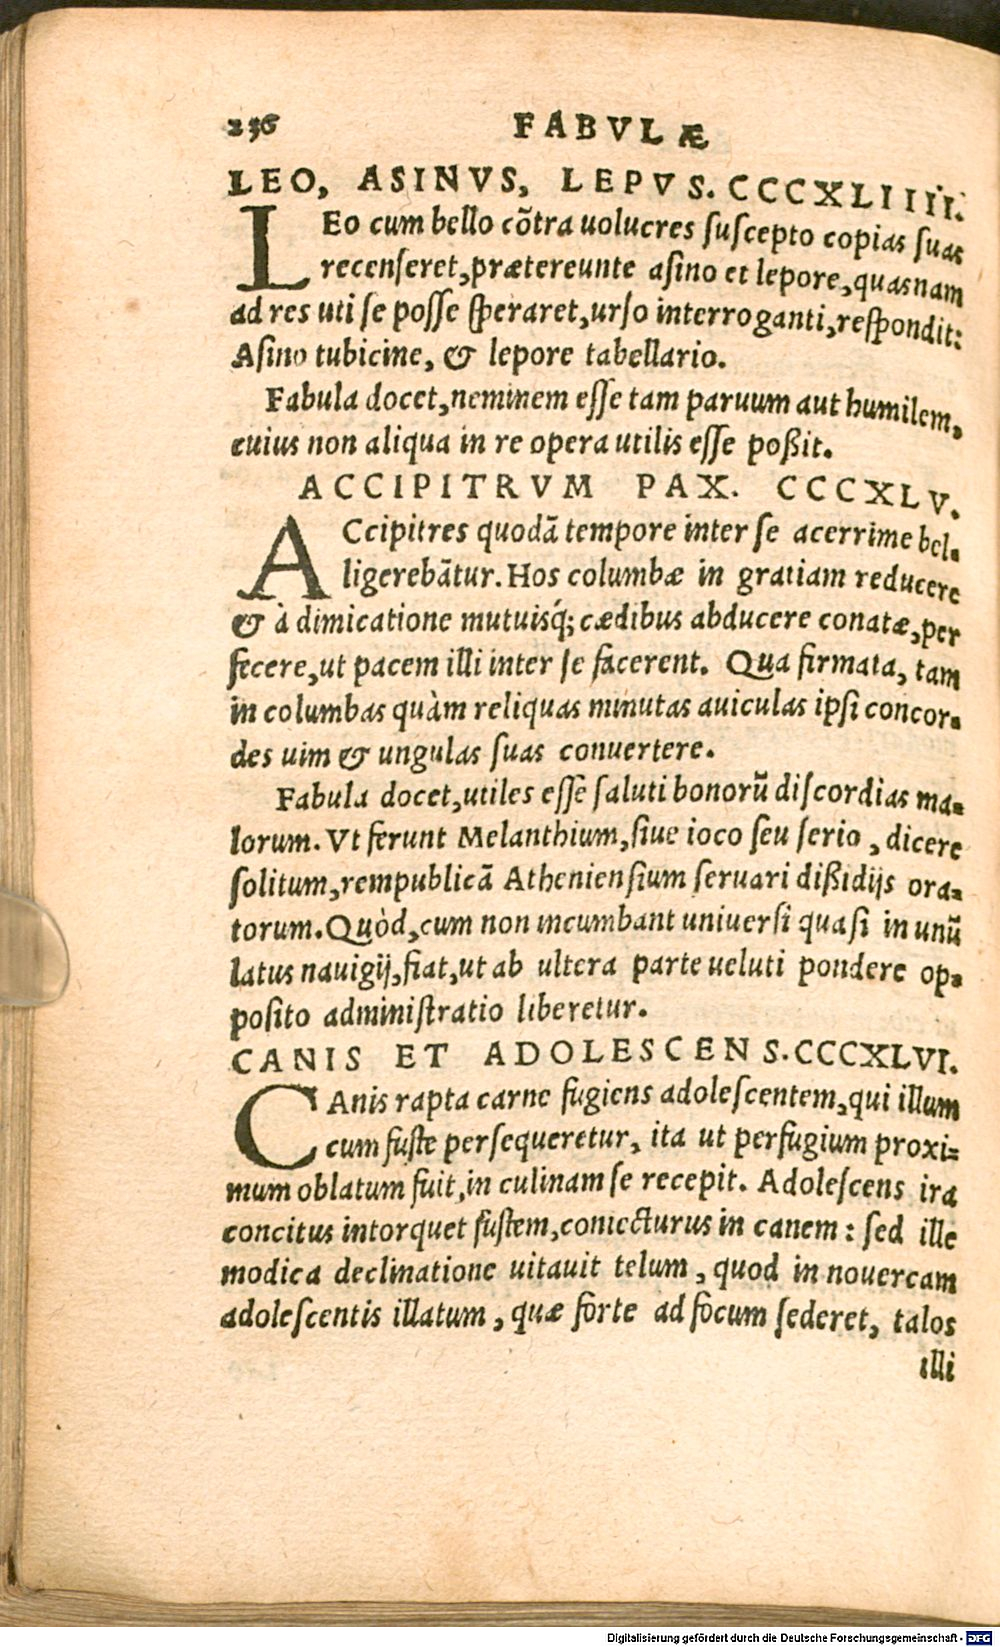 236 FABVLÆ
LEO, ASINVS, LEPVS. CCCXLIIII.
LEo cum bello cõtra uolucres ſuſcepto copias ſuas
recenſeret, prætereunte aſino et lepore, quasnam
ad res uti ſe poſſe ſperaret, urſo interroganti, reſpondit:
Aſino tubicine, & lepore tabellario.
Fabula docet, neminem eſſe tam paruum aut humilem,
cuius non aliqua in re opera utilis eſſe poßit.
ACCIPITRVM PAX. CCCXLV.
ACcipitres quodã tempore inter ſe acerrime bel⸗
ligerebãtur. Hos columbæ in gratiam reducere
& à dimicatione mutuisq́; cædibus abducere conatæ, per
fecere, ut pacem illi inter ſe facerent. Qua firmata, tam
in columbas quàm reliquas minutas auiculas ipſi concor⸗
des uim & ungulas ſuas conuertere.
Fabula docet, utiles eſſe ſaluti bonorũ diſcordias ma⸗
lorum. Vt ferunt Melanthium, ſiue ioco ſeu ſerio, dicere
ſolitum, rempublicã Athenienſium ſeruari dißidijs ora⸗
torum. Quòd, cum non incumbant uniuerſi quaſi in unũ
latus nauigij, fiat, ut ab ultera parte ueluti pondere op⸗
poſito adminiſtratio liberetur.
CANIS ET ADOLESCENS. CCCXLVI.
CAnis rapta carne fugiens adoleſcentem, qui illum
cum fuſte perſequeretur, ita ut perfugium proxi⸗
mum oblatum fuit, in culinam ſe recepit. Adoleſcens ira
concitus intorquet fuſtem, coniecturus in canem: ſed ille
modica declinatione uitauit telum, quod in nouercam
adoleſcentis illatum, quæ forte ad focum ſederet, talos
illi
Digitalisierung gefördert durch die Deutsche Forschungsgemeinschaft - DFG